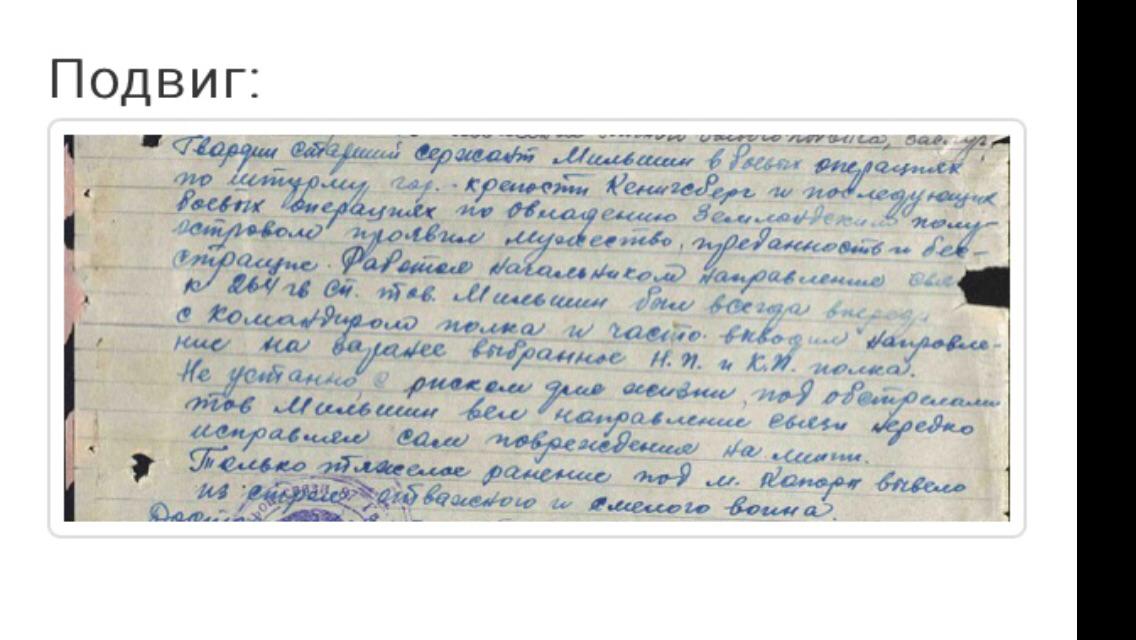 Подвиг:
боевого подвига, заслуг.
Гвардии старший сержант Мильшин в боевых операциях
по штурму гор. - крепости Кенигсберг и последующих
боевых операциях по овладению Земландским полу-
островом проявил мужество, преданность и бес-
страшие. Работая начальником направления связи
к 264 гв сп. тов. Мильшин был всегда впереди
с командиром полка и часто вкводил направле-
ние на заранее выбранное Н.П. и К.П. полка.
Не устанно с риском для жизни, под обстрелами
тов Мильшин вел направление связи нередко
исправлял сам повреждения на линии.
Только тяжелое ранение под м. вывело
из строя отважного и смелого воина.